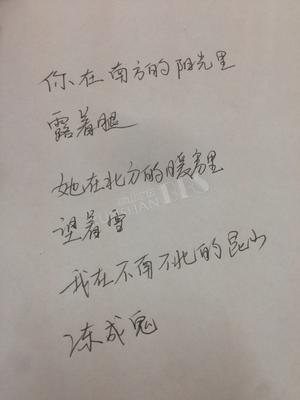 你在南方的阳光里
露着腿
她在北方的暖房里
望着雪
我在不南不北的昆山
冻成鬼